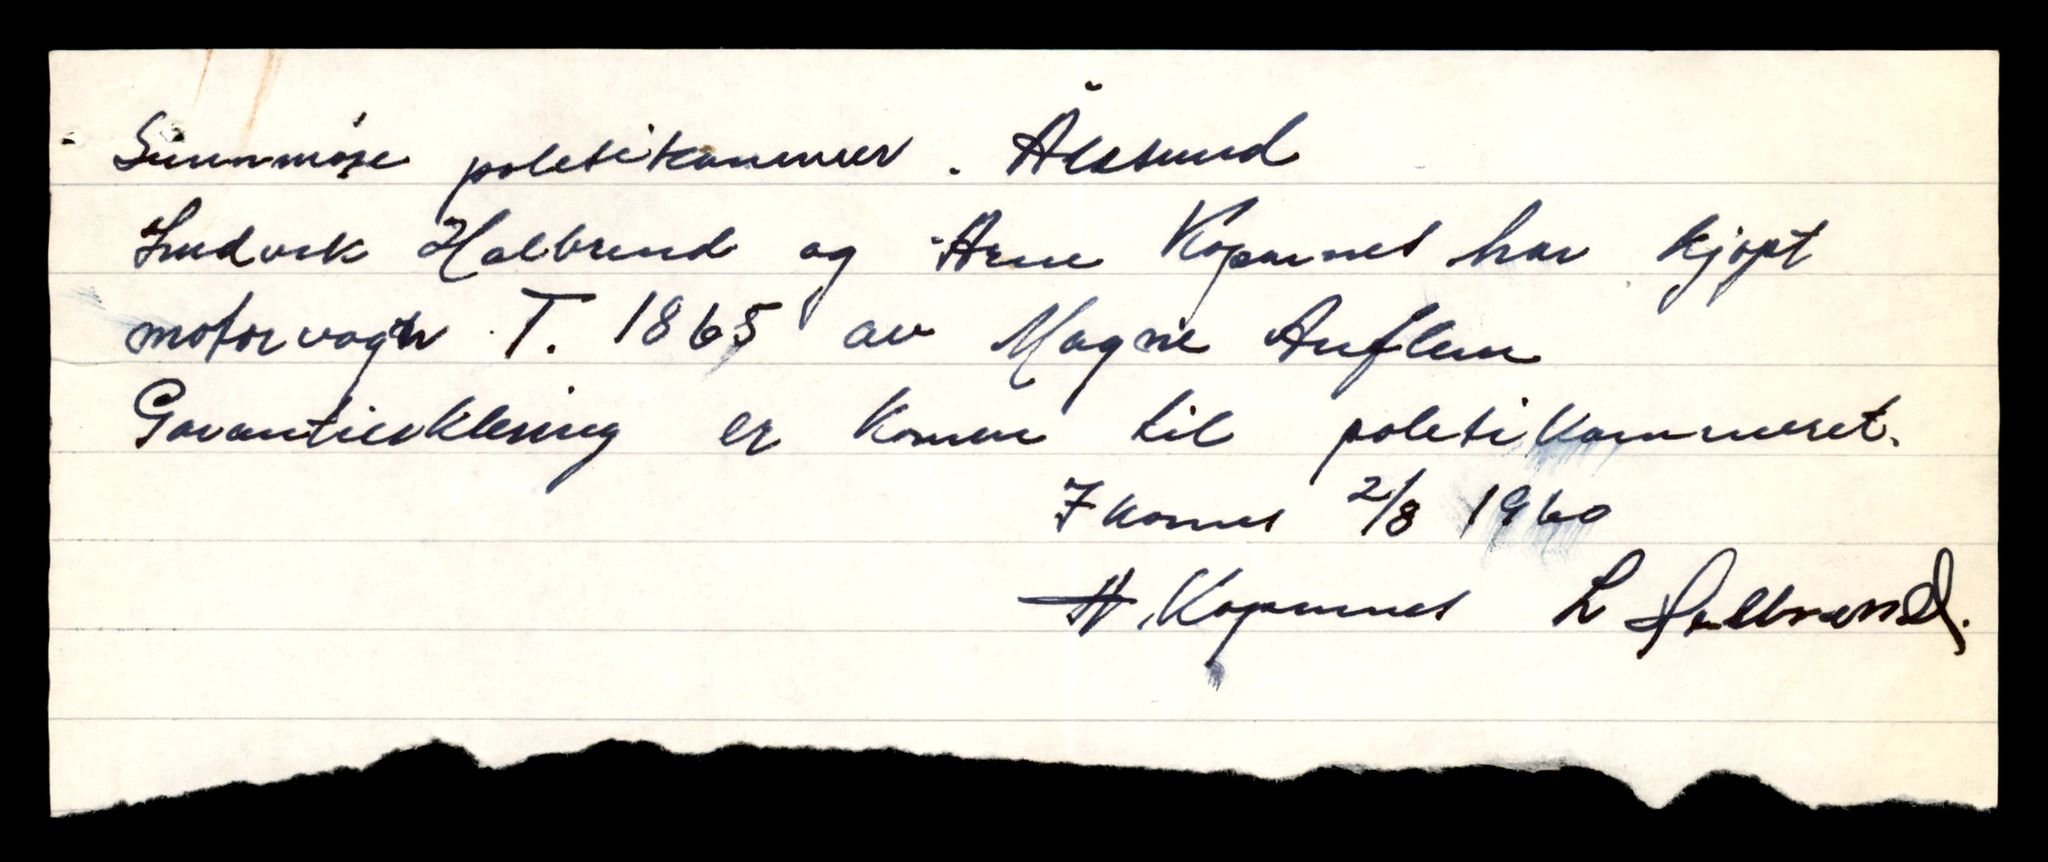 Sunnmøre politikammer. Ålesund
Ludvik Halbrend og Arne Kopernes har kjøpt
motorvogn T. 1865 av Magne Auflem
Garantierklering er komen til politikammeret.
2/8 1960
A. Kopernes L Halbrend.